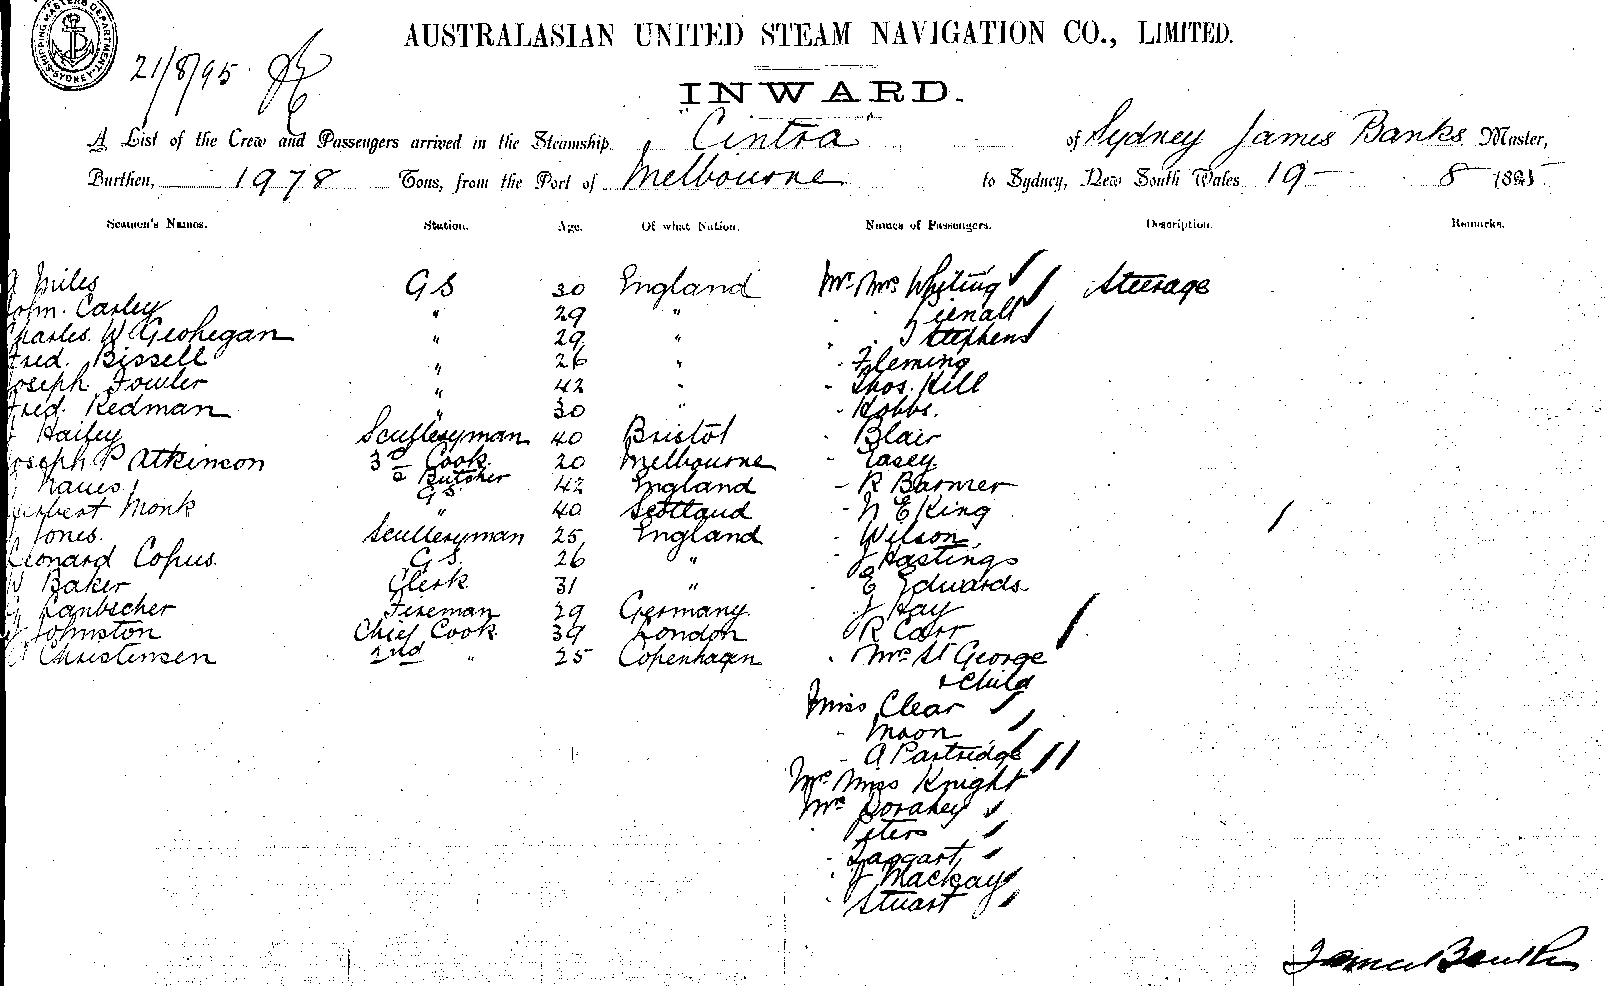 SHIPPING MASTERS DEPARTMENT SYDNEY
21/8/95
AUSTRALASIAN UNITED STEAM NAVIGATION CO., LIMITED.
INWARD.
A List of the Crew and Passengers arrived in the Steamship Cintra of Sydney James Banks Master,
Burthen, 1978 Tons, from the Port of Melbourne to Sydney, New South Wales 19 - 8 1895
Seamen's Names. Station. Age. Of what Nation. Names of Passengers. Description. Remarks.
Miles GS 30 England Mr. Mrs Whiting Steerage
John. Carley " 29 "
Charles. W Geohegan " 29 " " " Stephens
Fred. Bissell " 26 " - Fleming
Joseph Fowler " 42 " - Thos. Hill
Fred. Redman " 30 " - Hobbs.
Hailey Sculleryman 40 Bristol - Blair
Joseph P Atkinson 3rd Cook 20 Melbourne - Casey
& Butcher
GS 42 England - R Barmer
Herbert Monk " 40 Scotland - N E King
Jones. Sculleryman 25 England - Wilson
Leonard Copus. G.S. 26 " J Hastings
W Baker Clerk 31 " E Edwards
Fireman 29 Germany J Hay
Johnston Chief Cook 39 London R Carr
Christensen 2nd " 25 Copenhagen Mrs St George
& Child
Miss Clear
- Moon
- A Partridge
Mrs Miss Knight
Mr Dorahey
Peters
- Taggart
" J Mackay
" Stuart
James Banks